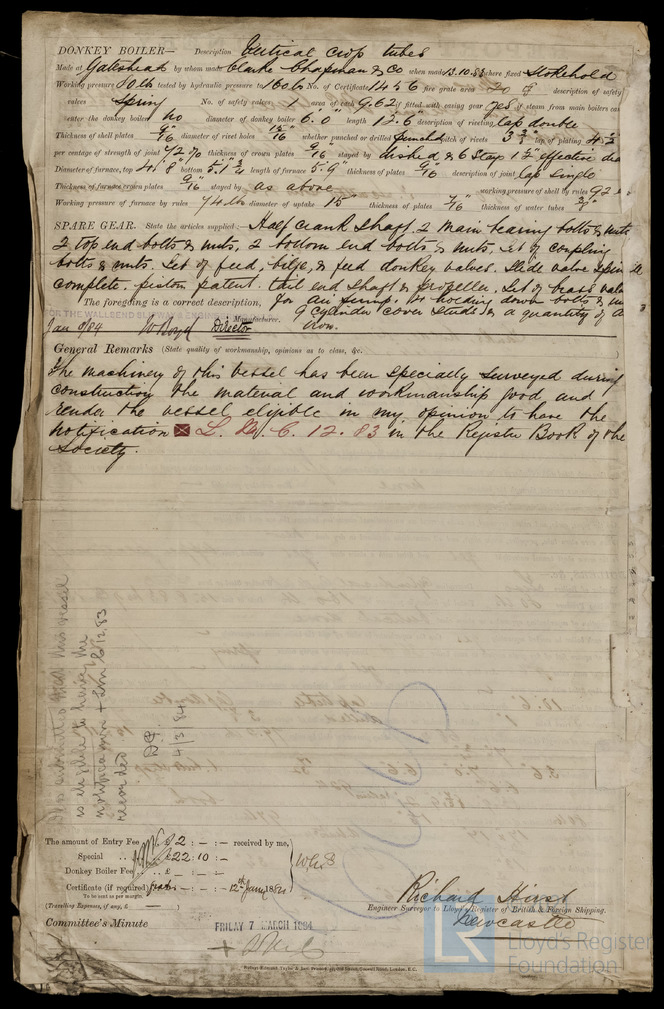 DONKEY BOILER— Description Vertical crop tubes
Made at Gateshead by whom made Clarke Chapman & Co when made 13.10.83 where fixed Stokehold
Working pressure 80 lb tested by hydraulic pressure to 160 lb No. of Certificate 1456 fire grate area 20 description of safety
valves Spring No. of safety valves 1 area of each 9.62 if fitted with easing gear yes if steam from main boilers can
enter the donkey boiler no diameter of donkey boiler 6'.0 length 12.6 description of riveting lap double
Thickness of shell plates 9/16 diameter of rivet holes 13/16 whether punched or drilled punched pitch of rivets lap of plating 4 1/2
per centage of strength of joint 72 % thickness of crown plates 9/16 stayed by dished & 6 Stay 1 1/2 effective dia
Diameter of furnace, top 4'.8" bottom length of furnace 5.9" thickness of plates 9/16 description of joint lap single
Thickness of furnace crown plates 9/16 stayed by as above working pressure of shell by rules 92
Working pressure of furnace by rules 74 lb diameter of uptake 15" thickness of plates 7/16 thickness of water tubes
SPARE GEAR. State the articles supplied:— Half crank shaft. 2 main bearing bolts & nuts
2 top end bolts & nuts, 2 bottom end bolts & nuts. Set of coupling
bolts & nuts. Set of feed, bilge, & feed donkey valves. Slide valve spindle
complete. piston patent. tail end shaft & propeller. Set of brass valves
for air pump. holding down bolts &
The foregoing is correct description,
9 cylinder cover studs & a quantity of
FOR THE WALLSEND SLIPWAY & ENGINEERING
Jan 9/84 W Boyd Director Manufacturer. Iron.
General Remarks (State quality of workmanship, opinions as to class, &c.
The machinery of this vessel has been specially surveyed during
construction the material and workmanship good and
render the vessel eligible in my opinion to have the
notification L. M. C. 12. 83 in the Register Book of the
Society.
It is submitted that this vessel
is eligible to have the
notification + LMC 12.83
recorded
4/3/84
The amount of Entry Fee £2 : – : – received by me,
Special .. £22 : 10 : –
Donkey Boiler Fee .. £ – : – : –
Certificate (if required) : – : – 12th Jany 1884
To be sent as per margin.
(Travelling Expenses, if any, £ )
Richard Hirst
Engineer Surveyor to Lloyd's Register of British & Foreign Shipping.
Newcastle
Committee's Minute
FRIDAY 7 MARCH 1884
Lloyd's Register
Foundation